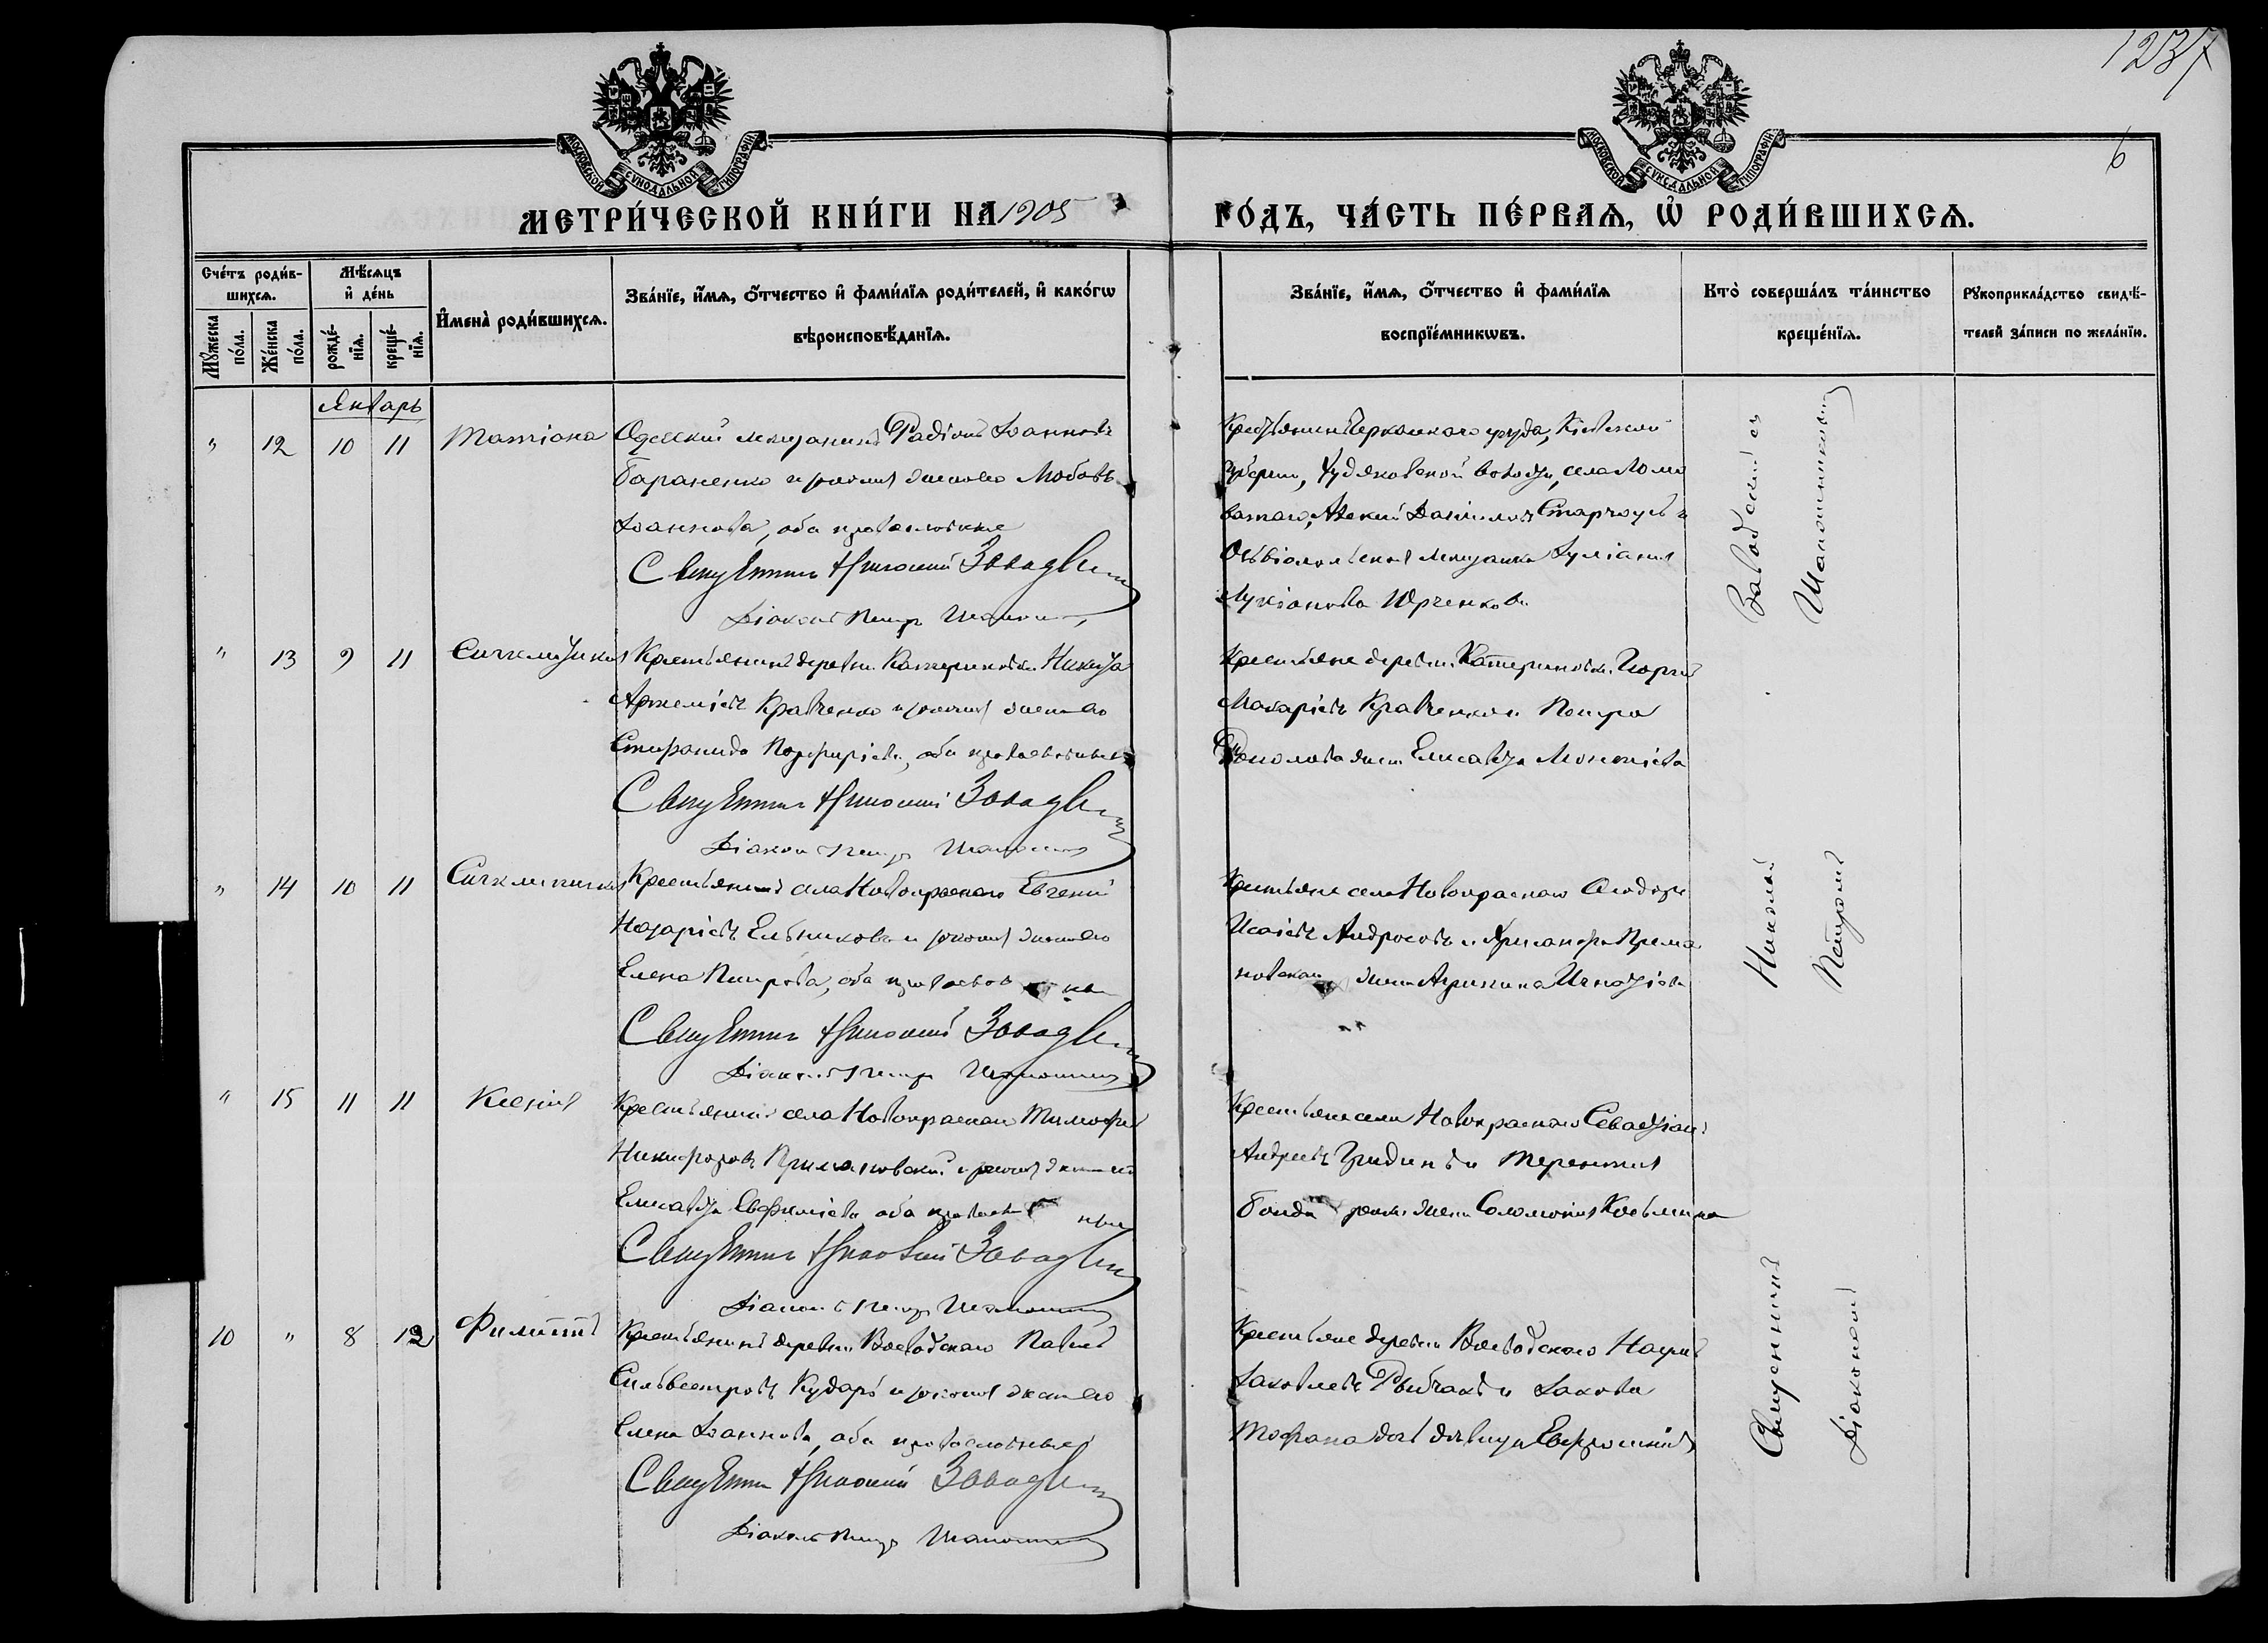 1237
6
МОСКОВСКОЙ СѴНОДАЛЬНОЙ ТИПОГРАФІИ
МОСКОВСКОЙ СѴНОДАЛЬНОЙ ТИПОГРАФІИ
МЕТРИ́ЧЕСКОЙ КНИ́ГИ НА 1905
ГО́ДЪ, ЧА́СТЬ ПЕ́РВАѦ, Ѡ҆ РОДИ́ВШИХСѦ.
Сче́тъ роди́в-
шихсѧ.
Мꙋ́жеска по́ла.
Же́нска по́ла.
Мѣ́сѧцъ
и҆ де́нь
рожде́-
нїѧ.
креще́-
нїѧ.
И҆мена̀ роди́вшихсѧ.
Зва́нїе, и҆́мѧ, ѻ҆́тчество и҆ фами́лїѧ роди́телей, и҆ како́гѡ
вѣроисповѣ́данїѧ.
Зва́нїе, и҆́мѧ, ѻ҆́тчество и҆ фами́лїѧ
воспрїе́мникѡвъ.
Кто̀ соверша́лъ та́инство
креще́нїѧ.
Рꙋкоприкла́дство свидѣ́-
телей за́писи по жела́нїю.
Январь
" 12 10 11 Татіана
Одесскій мещанинъ Радіонъ Іоанновъ
Бараненко и законная жена его Любовь
Іоаннова, оба православные
Священникъ Николай Завадскій
Діаконъ Петръ
Крестьянинъ Черкасскаго уѣзда, Кіевской
губерніи, Худяковской волости, села Ломо
ватаго, Даниловъ и
Овидіопольская мещанка Іуліанія
Лукіанова Юрченкова
" 13 9 11 Синклитикія
Крестьянинъ деревни Катериновки Никита
Артеміевъ Кравченко и законная жена его
Стефанида Порфиріева, оба православные
Священникъ Николай Завадскій
Діаконъ Петръ
Крестьяне деревни Катериновки Георгій
Макаріевъ Кравченко и Петра
жена Елисавета
" 14 10 11 Синклитикія
Крестьянинъ села Новокраснаго Евгеній
Назаріевъ Ельниковъ и законная жена его
Елена Петрова, оба православные
Священникъ Николай Завадскій
Діаконъ Петръ
Крестьяне села Новокраснаго Ѳеодоръ
Исаіевъ Андросовъ и Хрисанфа Прима
ковскаго жена Агрипина Игнатіева
" 15 11 11 Ксенія
Крестьянинъ села Новокраснаго Тимофей
Никифоровъ Примаковскій и законная жена его
Елисавета Евфиміева оба православные
Священникъ Николай Завадскій
Діаконъ Петръ
Крестьяне села Новокраснаго Севастіанъ
Андреевъ Гридинъ и Терентія
Бонда жена Соломонія Косьмина
10 " 8 12 Филиппъ
Крестьянинъ деревни Воеводскаго Павелъ
Сильвестровъ Кударь и законная жена его
Елена Іоаннова, оба православные
Священникъ Николай Завадскій
Діаконъ Петръ
Крестьяне деревни Воеводскаго Наумъ
Іаковлевъ Рыбчакъ и Іакова
дочь дѣвица Евфросинія
Священникъ Николай Завадскій съ
Діакономъ Петромъ